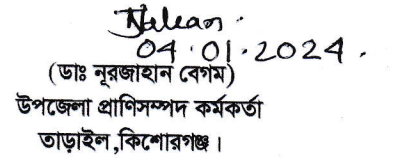 04.01.2024.
(ডাঃ নূরজাহান বেগম)
উপজেলা প্রাণিসম্পদ কর্মকর্তা
তাড়াইল,কিশোরগঞ্জ।